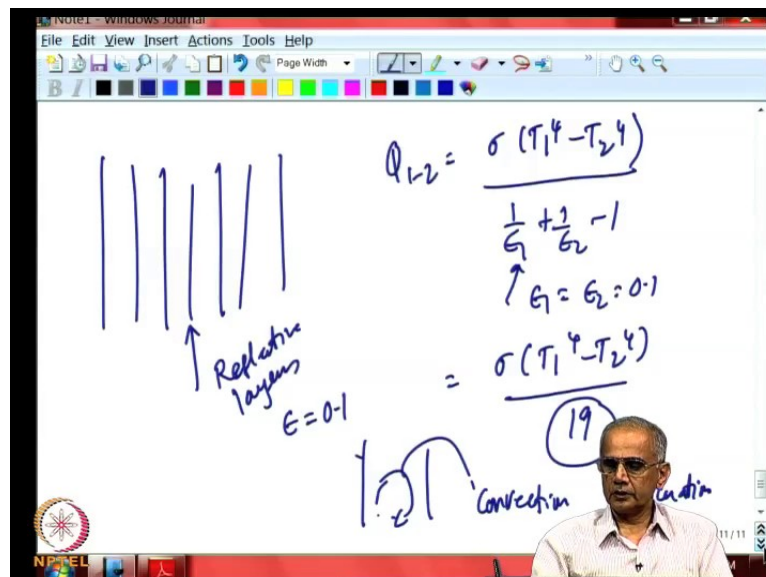 Note1 - Windows Journal
File Edit View Insert Actions Tools Help
Page Width
B I
Q₁₋₂ = σ (T₁⁴ - T₂⁴)
1/ϵ₁ + 1/ϵ₂ - 1
ϵ₁ = ϵ₂ = 0.1
Reflective
layers
ϵ = 0.1
= σ (T₁⁴ - T₂⁴)
19
Convection
11/11
NPTEL